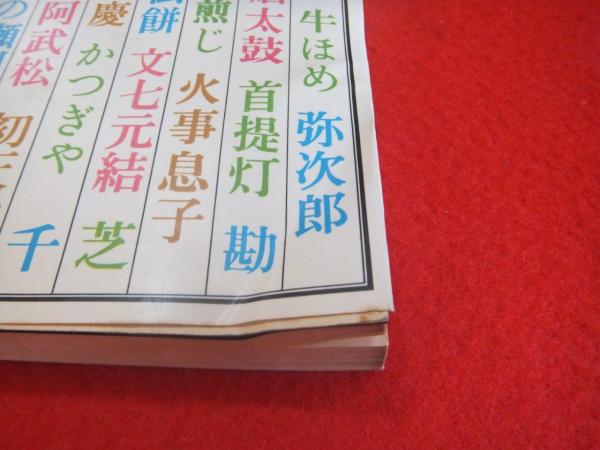 牛ほめ 弥次郎
太鼓 首提灯 勘
煎じ 火事息子
餅 文七元結 芝
慶 かつぎや
阿武松 初天 千
の